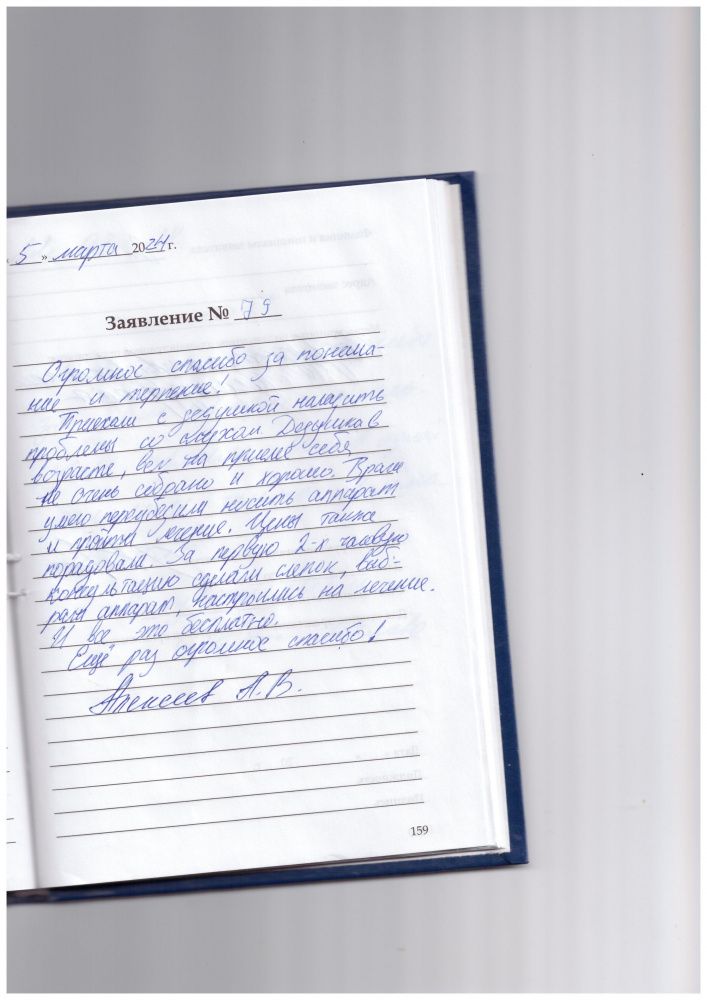 « 5 » марта 2024 г.
Заявление № 79
Огромное спасибо за понима-
ние и терпение!
Приехали с дедушкой наладить
проблемы со слухом. Дедушка в
возрасте, вел на приеме себя
не очень собрано и хорошо. Врачи
умело переубедили носить аппарат
и пройти лечение. Цены также
порадовали. За первую 2-х часовую
консультацию сделали слепок, выб-
рали аппарат, настроились на лечение.
И все это бесплатно.
Ещё раз огромное спасибо!
Алексеев А.В.
159